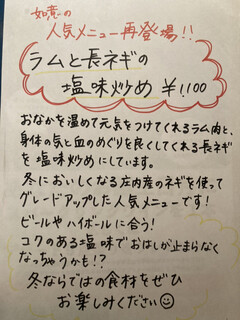 如意の
人気メニュー再登場!!
ラムと長ネギの
塩味炒め ¥1,100
おなかを温めて元気をつけてくれるラム肉と、
身体の気と血のめぐりを良くしてくれる長ネギ
を塩味炒めにしています。
冬においしくなる庄内産のネギを使って
グレードアップした人気メニューです!
ビールやハイボールに合う!
コクのある塩味でおはしが止まらなく
なっちゃうかも!?
冬ならではの食材をぜひ
お楽しみください☺